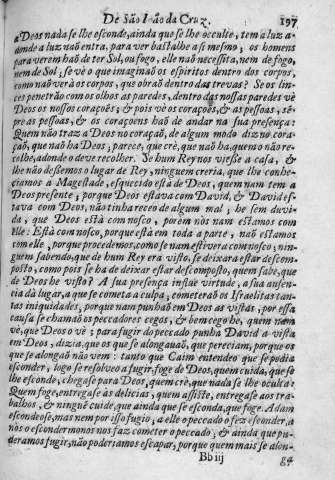 De São Ioão da Cruz. 197
a Deos nada se lhe esconde, ainda que se lhe occulte, tem a luz a-
donde a luz naõ entra, para ver bastalhe a si mesmo; os homens
para verem haõ de ter Sol, ou fogo, elle naõ necessita, nem de fogo,
nem de Sol; se vè o que imaginaõ os espiritos dentro dos corpos,
como naõ verà os corpos, que obraõ dentro das trevas? Se os lin-
ces penetraõ com os olhos as paredes, dentro das nossas paredes vè
Deos os nossos coraçoẽs; & pois vè os coraçoẽs, & as pessoas, sẽ-
pre as pessoas, & os coraçoens haõ de andar na sua presença:
Quem não traz a Deos no coraçaõ, de algum modo diz no cora-
çaõ, que naõ ha Deos; parece, que crè, que naõ ha, quem o não re-
colhe, adonde o deve recolher. Se hum Rey nos viesse a casa, &
lhe não dessemos o lugar de Rey, ninguem creria, que lhe conhe-
ciamos a Magestade, esquecido està de Deos, quem nam tem a
Deos presente; porque Deos estava com David, & David es-
tava com Deos, não tinha receo de algum mal; he sem duvi-
da, que Deos està com nosco, porèm nòs nam estamos com
elle: Està com nosco, porque està em toda a parte, naõ estamos
com elle, porque procedemos, como se nam estivera com nosco; nin-
guem sabendo, que de hum Rey era visto, se deixara estar descom-
posto, como pois se ha de deixar estar descomposto, quem sabe, que
de Deos he visto? A sua presença influe virtude, a sua ausen-
cia dà lugar, a que se cometa a culpa, cometeraõ os Israelitas tan-
tas iniquidades, porque nam punhaõ em Deos as vistas; por essa
causa se chamaõ os peccadores cegos, & bem cego he, quem nem
vè, que Deos o vè; para fugir do peccado punha David a vista
em Deos, dizia, que os que se alongauaõ, que pereciam, porque os
que se alongaõ não vem: tanto que Caim entendeo que se podia
esconder, logo se resolveo a fugir, foge de Deos, quem cuida, que se
lhe esconde, chegase para Deos, quem crè, que nada se lhe occulta:
Quem foge, entregase às delicias, quem assiste, entregase aos tra-
balhos, & ninguẽ cuide, que ainda que se esconda, que foge. Adam
escondeose, mas nem por isso fugio, a elle o peccado o fez esconder, a
nòs o escondermonos nos faz cometer o peccado; & ainda que pu-
deramos fugir, não poderamos escapar, porque quem mais se alon-
Bb iij ga